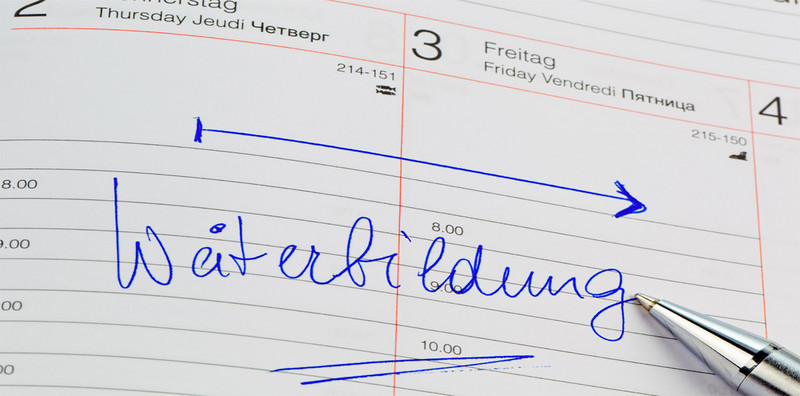 2
nnerstag
Thursday Jeudi Четверг
214-151
3
Freitag
Friday Vendredi Пятница
215-150
4
8.00
9.00
00
00
8.00
9.00
10.00
Weiterbildung